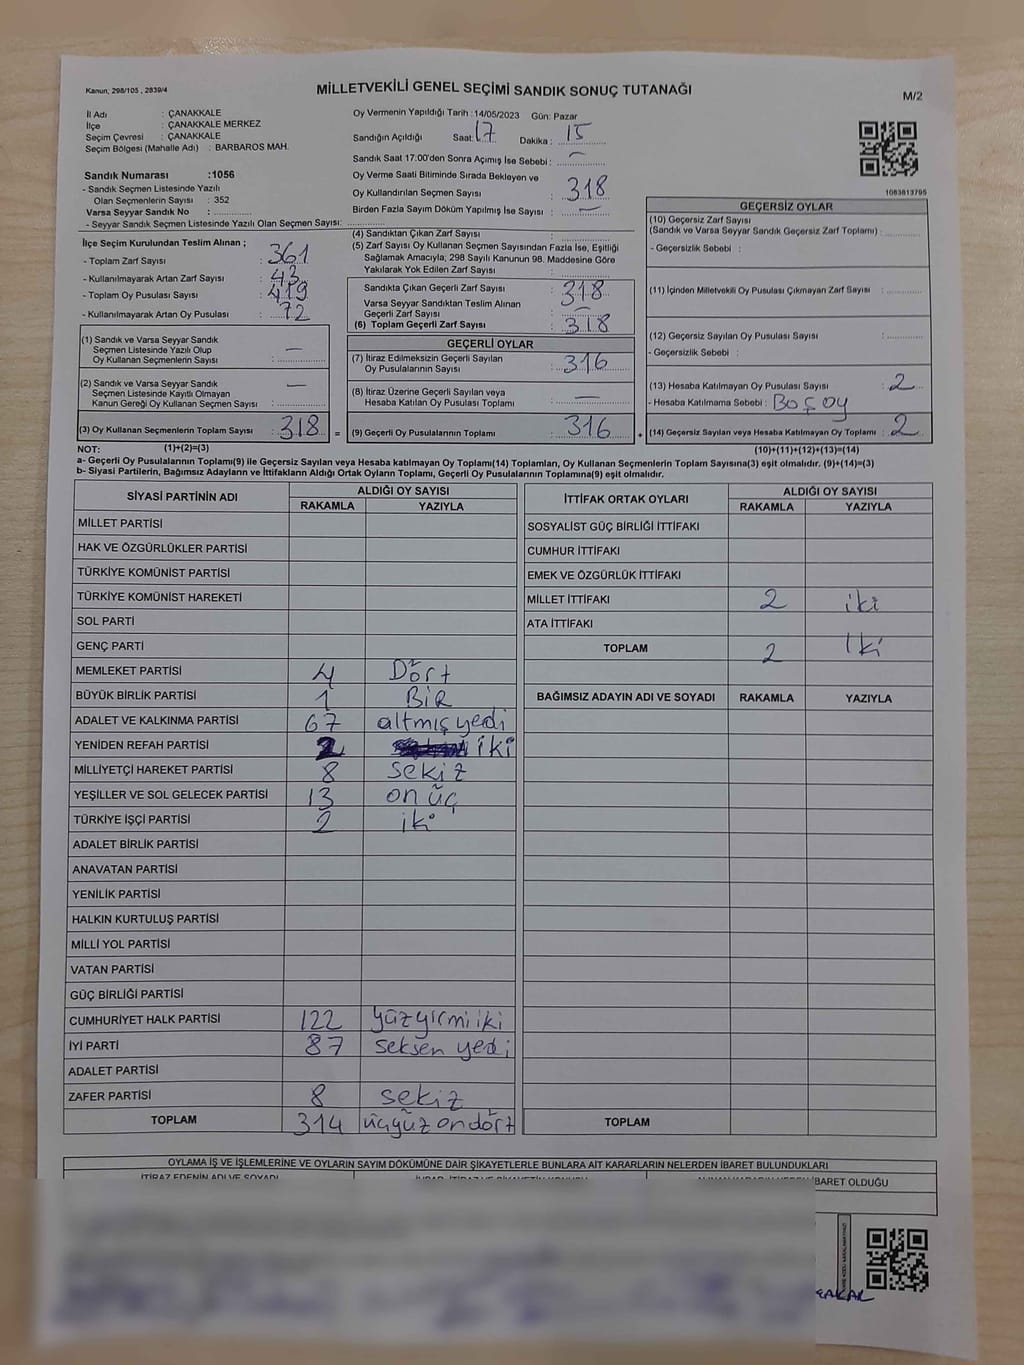 Kanun, 298/105 , 2839/4
MİLLETVEKİLİ GENEL SEÇİMİ SANDIK SONUÇ TUTANAĞI
M/2
İl Adı : ÇANAKKALE
İlçe : ÇANAKKALE MERKEZ
Seçim Çevresi : ÇANAKKALE
Seçim Bölgesi (Mahalle Adı) : BARBAROS MAH.
Sandık Numarası :1056
- Sandık Seçmen Listesinde Yazılı
Olan Seçmenlerin Sayısı : 352
Varsa Seyyar Sandık No :
- Seyyar Sandık Seçmen Listesinde Yazılı Olan Seçmen Sayısı:
Oy Vermenin Yapıldığı Tarih :14/05/2023 Gün: Pazar
Sandığın Açıldığı Saat: 17 Dakika : 15
Sandık Saat 17:00'den Sonra Açımış İse Sebebi : –
Oy Verme Saati Bitiminde Sırada Bekleyen ve
Oy Kullandırılan Seçmen Sayısı : 318
Birden Fazla Sayım Döküm Yapılmış İse Sayısı : –
1083813795
İlçe Seçim Kurulundan Teslim Alınan ;
- Toplam Zarf Sayısı : 361
- Kullanılmayarak Artan Zarf Sayısı : 43
- Toplam Oy Pusulası Sayısı : 419
- Kullanılmayarak Artan Oy Pusulası : 72
(1) Sandık ve Varsa Seyyar Sandık
Seçmen Listesinde Yazılı Olup
Oy Kullanan Seçmenlerin Sayısı : –
(2) Sandık ve Varsa Seyyar Sandık
Seçmen Listesinde Kayıtlı Olmayan
Kanun Gereği Oy Kullanan Seçmen Sayısı : –
(3) Oy Kullanan Seçmenlerin Toplam Sayısı : 318 =
(4) Sandıktan Çıkan Zarf Sayısı :
(5) Zarf Sayısı Oy Kullanan Seçmen Sayısından Fazla İse, Eşitliği
Sağlamak Amacıyla; 298 Sayılı Kanunun 98. Maddesine Göre
Yakılarak Yok Edilen Zarf Sayısı :
Sandıkta Çıkan Geçerli Zarf Sayısı : 318
Varsa Seyyar Sandıktan Teslim Alınan
Geçerli Zarf Sayısı : –
(6) Toplam Geçerli Zarf Sayısı : 318
GEÇERLİ OYLAR
(7) İtiraz Edilmeksizin Geçerli Sayılan
Oy Pusulalarının Sayısı : 316
(8) İtiraz Üzerine Geçerli Sayılan veya
Hesaba Katılan Oy Pusulası Toplamı : –
(9) Geçerli Oy Pusulalarının Toplamı : 316 +
GEÇERSİZ OYLAR
(10) Geçersiz Zarf Sayısı
(Sandık ve Varsa Seyyar Sandık Geçersiz Zarf Toplamı) :
- Geçersizlik Sebebi :
(11) İçinden Milletvekili Oy Pusulası Çıkmayan Zarf Sayısı :
(12) Geçersiz Sayılan Oy Pusulası Sayısı :
- Geçersizlik Sebebi :
(13) Hesaba Katılmayan Oy Pusulası Sayısı : 2
- Hesaba Katılmama Sebebi : Boş oy
(14) Geçersiz Sayılan veya Hesaba Katılmayan Oy Toplamı : 2
NOT: (1)+(2)=(3) (10)+(11)+(12)+(13)=(14)
a- Geçerli Oy Pusulalarının Toplamı(9) ile Geçersiz Sayılan veya Hesaba katılmayan Oy Toplamı(14) Toplamları, Oy Kullanan Seçmenlerin Toplam Sayısına(3) eşit olmalıdır. (9)+(14)=(3)
b- Siyasi Partilerin, Bağımsız Adayların ve İttifakların Aldığı Ortak Oyların Toplamı, Geçerli Oy Pusulalarının Toplamına(9) eşit olmalıdır.
SİYASİ PARTİNİN ADI ALDIĞI OY SAYISI
RAKAMLA YAZIYLA
MİLLET PARTİSİ
HAK VE ÖZGÜRLÜKLER PARTİSİ
TÜRKİYE KOMÜNİST PARTİSİ
TÜRKİYE KOMÜNİST HAREKETİ
SOL PARTİ
GENÇ PARTİ
MEMLEKET PARTİSİ 4 Dört
BÜYÜK BİRLİK PARTİSİ 1 BİR
ADALET VE KALKINMA PARTİSİ 67 altmış yedi
YENİDEN REFAH PARTİSİ 2 iki
MİLLİYETÇİ HAREKET PARTİSİ 8 sekiz
YEŞİLLER VE SOL GELECEK PARTİSİ 13 on üç
TÜRKİYE İŞÇİ PARTİSİ 2 iki
ADALET BİRLİK PARTİSİ
ANAVATAN PARTİSİ
YENİLİK PARTİSİ
HALKIN KURTULUŞ PARTİSİ
MİLLİ YOL PARTİSİ
VATAN PARTİSİ
GÜÇ BİRLİĞİ PARTİSİ
CUMHURİYET HALK PARTİSİ 122 yüz yirmi iki
İYİ PARTİ 87 seksen yedi
ADALET PARTİSİ
ZAFER PARTİSİ 8 sekiz
TOPLAM 314 üçyüz on dört
İTTİFAK ORTAK OYLARI ALDIĞI OY SAYISI
RAKAMLA YAZIYLA
SOSYALİST GÜÇ BİRLİĞİ İTTİFAKI
CUMHUR İTTİFAKI
EMEK VE ÖZGÜRLÜK İTTİFAKI
MİLLET İTTİFAKI 2 iki
ATA İTTİFAKI
TOPLAM 2 iki
BAĞIMSIZ ADAYIN ADI VE SOYADI RAKAMLA YAZIYLA
TOPLAM
OYLAMA İŞ VE İŞLEMLERİNE VE OYLARIN SAYIM DÖKÜMÜNE DAİR ŞİKAYETLERLE BUNLARA AİT KARARLARIN NELERDEN İBARET BULUNDUKLARI
İTİRAZ EDENİN ADI VE SOYADI
İBARET OLDUĞU